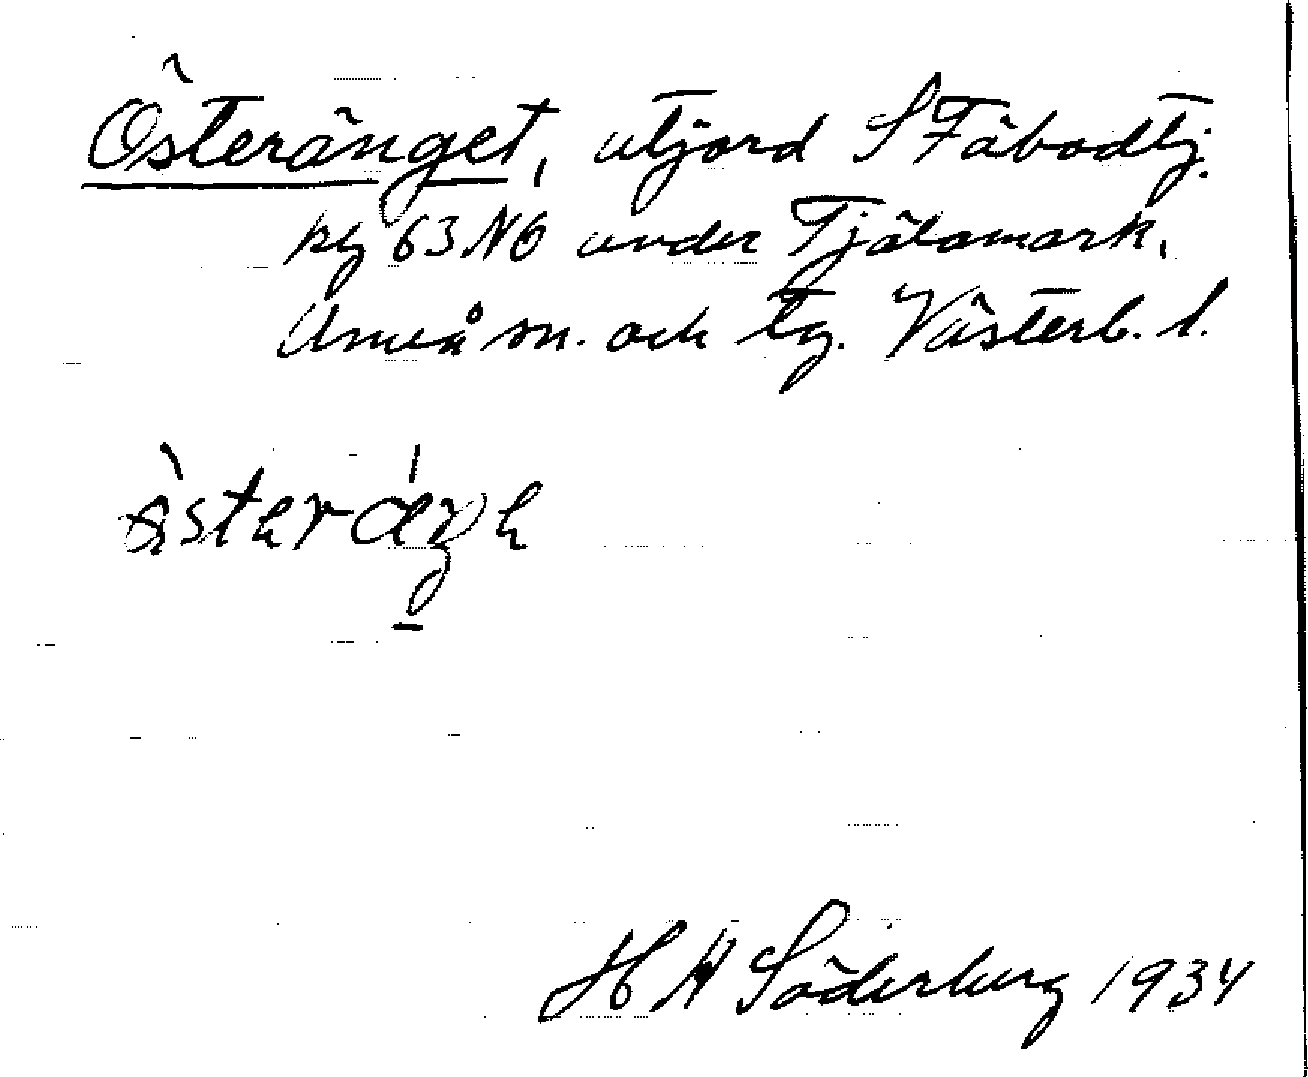 Österänget, utjord S Fäbodtj.
kbl 63 NO under Tjälamark,
Umeå sn. och tg. Västerb. l.
H N Söderberg 1934